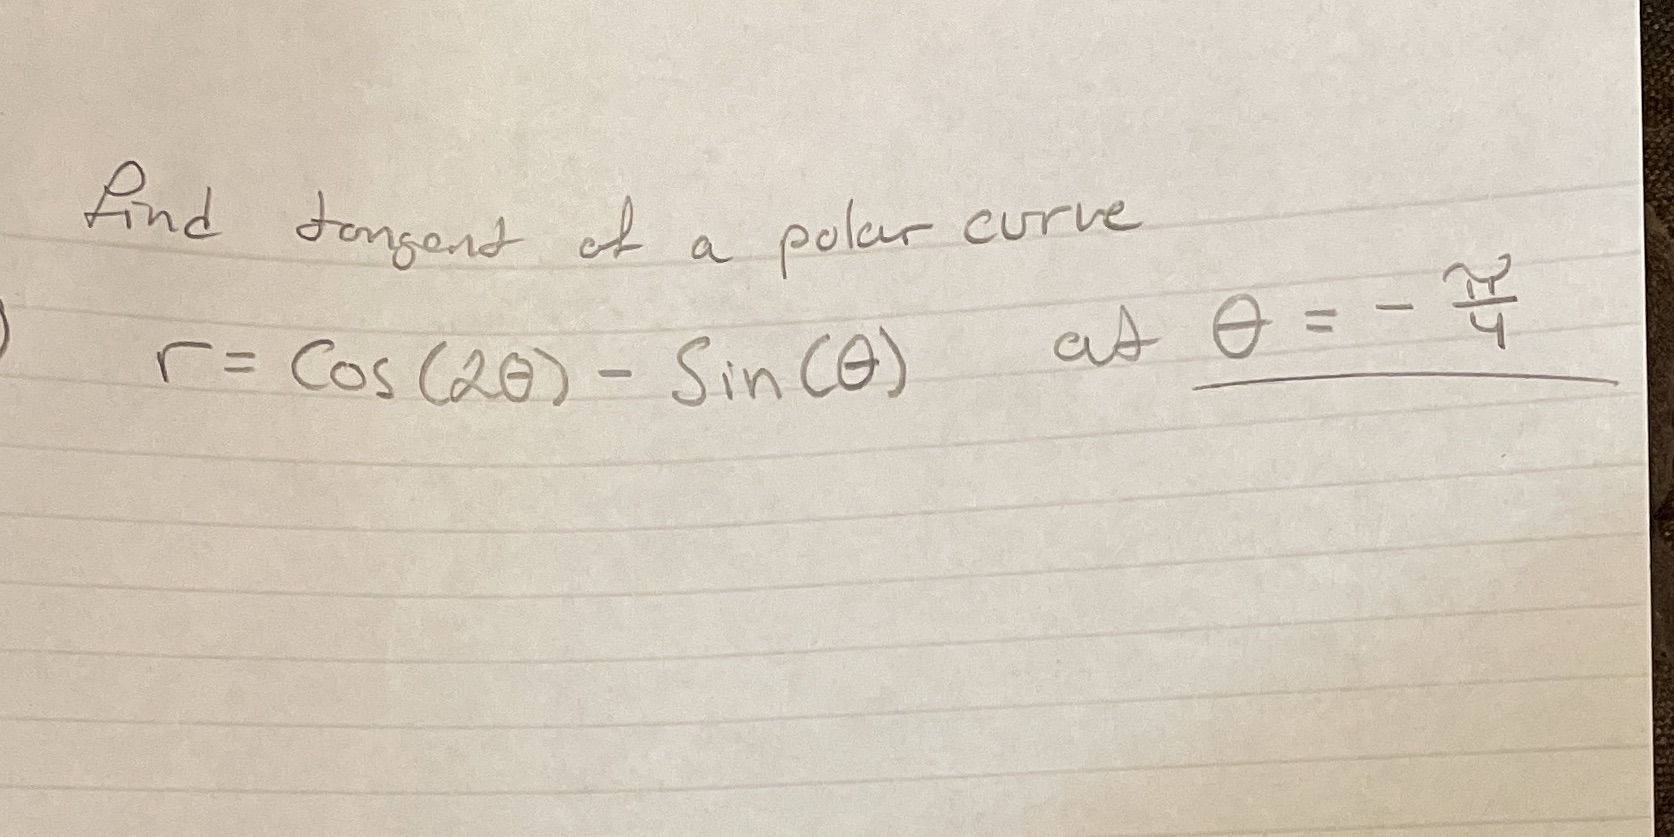 find tangent of a polar curve
) r = Cos(2θ) - Sin(θ) at θ = - π/4